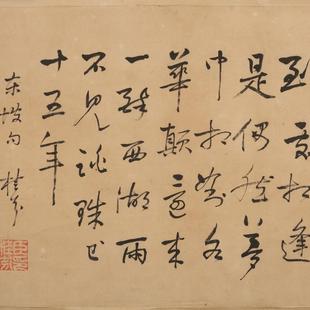 到處相逢
是偶然夢
中相對各
華顛還來
一醉西湖雨
不見跳珠
十五年
東坡句 桂芬